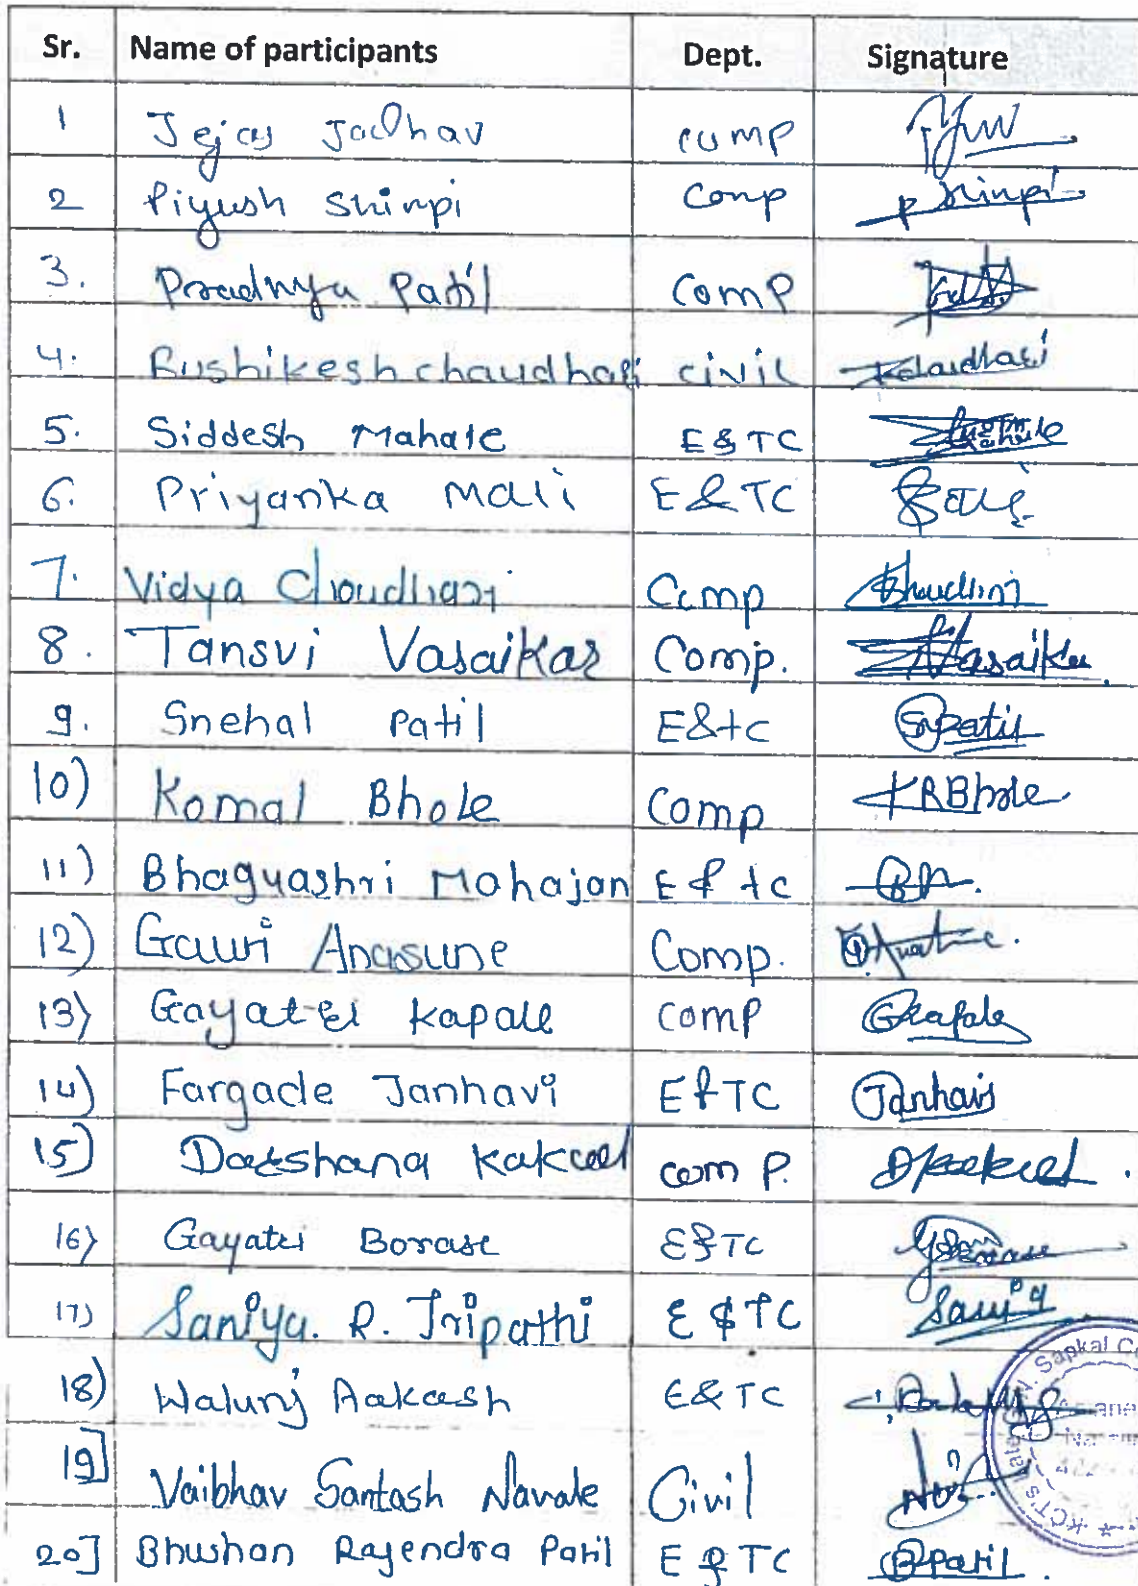 Sr. Name of participants Dept. Signature
1 Jejas Jadhav comp
2 Piyush Shinpi Comp P Shinpi
3. Pradnya Patil Comp
4. Rushikesh chaudhari civil
5. Siddesh Mahale E & TC
6. Priyanka Mali E & TC
7. Vidya Choudhari Comp
8. Tansvi Vasaikar Comp. Vasaikar
9. Snehal Patil E&tc SPatil
10) Komal Bhole Comp KRBhole
11) Bhagyashri Mahajan E & tc
12) Gauri Anasune Comp.
13) Gayatri Kapale comp GKapale
14) Fargade Janhavi E & TC Janhavi
15] Darshana Kakad comp.
16) Gayatri Borase E & TC
17) Saniya. R. Tripathi E & TC Saniya
18) Walunj Aakash E & TC
19] Vaibhav Santash Navale Civil
20] Bhushan Rajendra Patil E & TC BPatil.
Sapkal KCT's Late